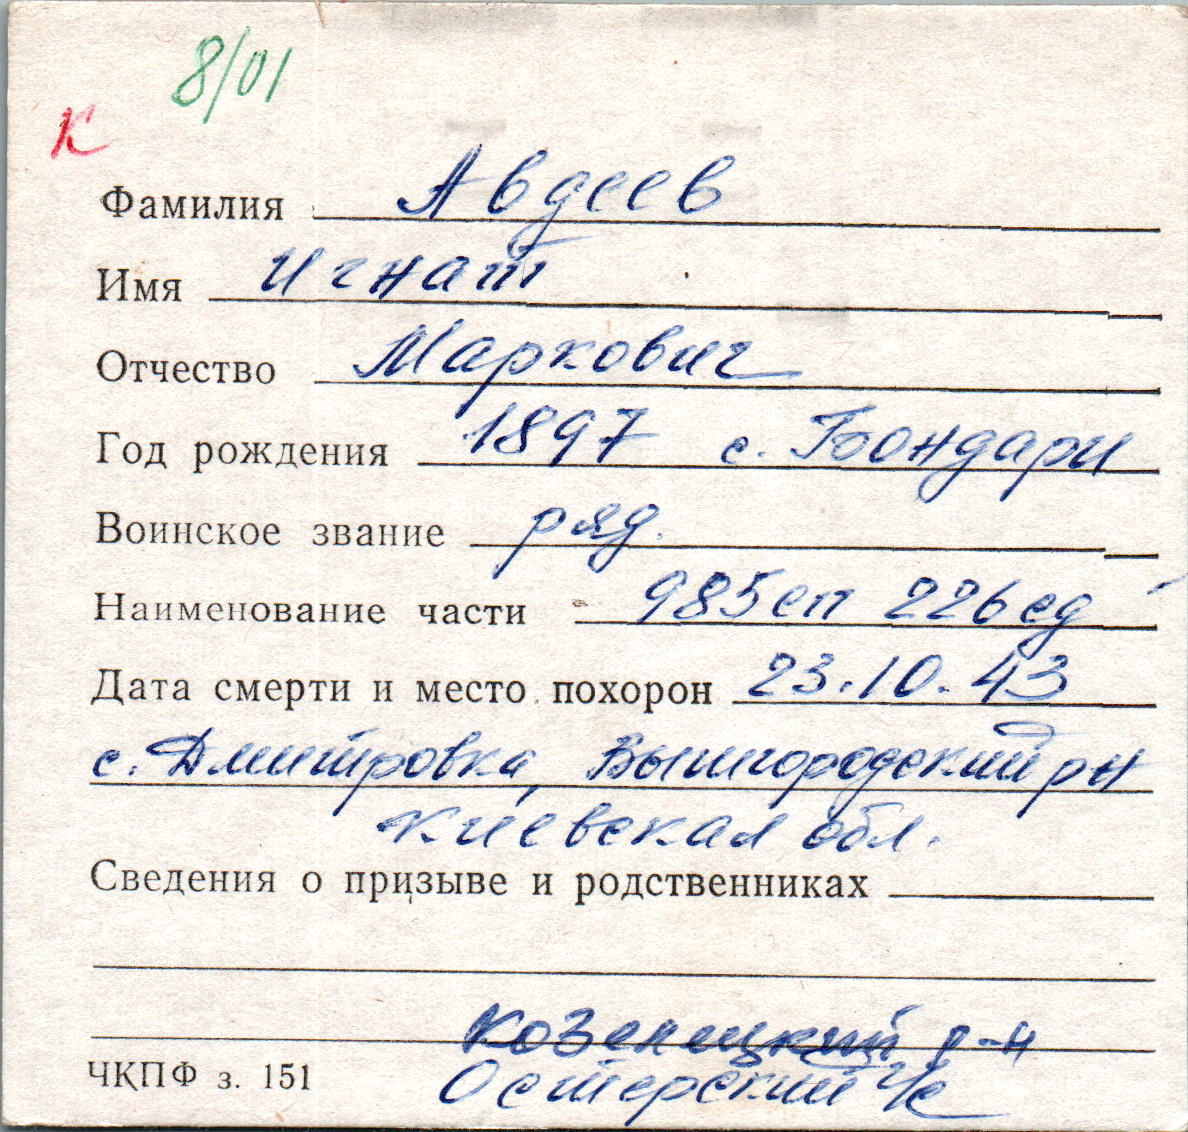 8/01
К
Фамилия Авдеев
Имя Игнат
Отчество Маркович
Год рождения 1897 с. Бондари
Воинское звание ряд.
Наименование части 985сп 226сд
Дата смерти и место похорон 23.10.43
с. Дмитровка, Вышгородский рн
Киевская обл.
Сведения о призыве и родственниках
Козелецкий р-н
Остерский
ЧКПФ з. 151